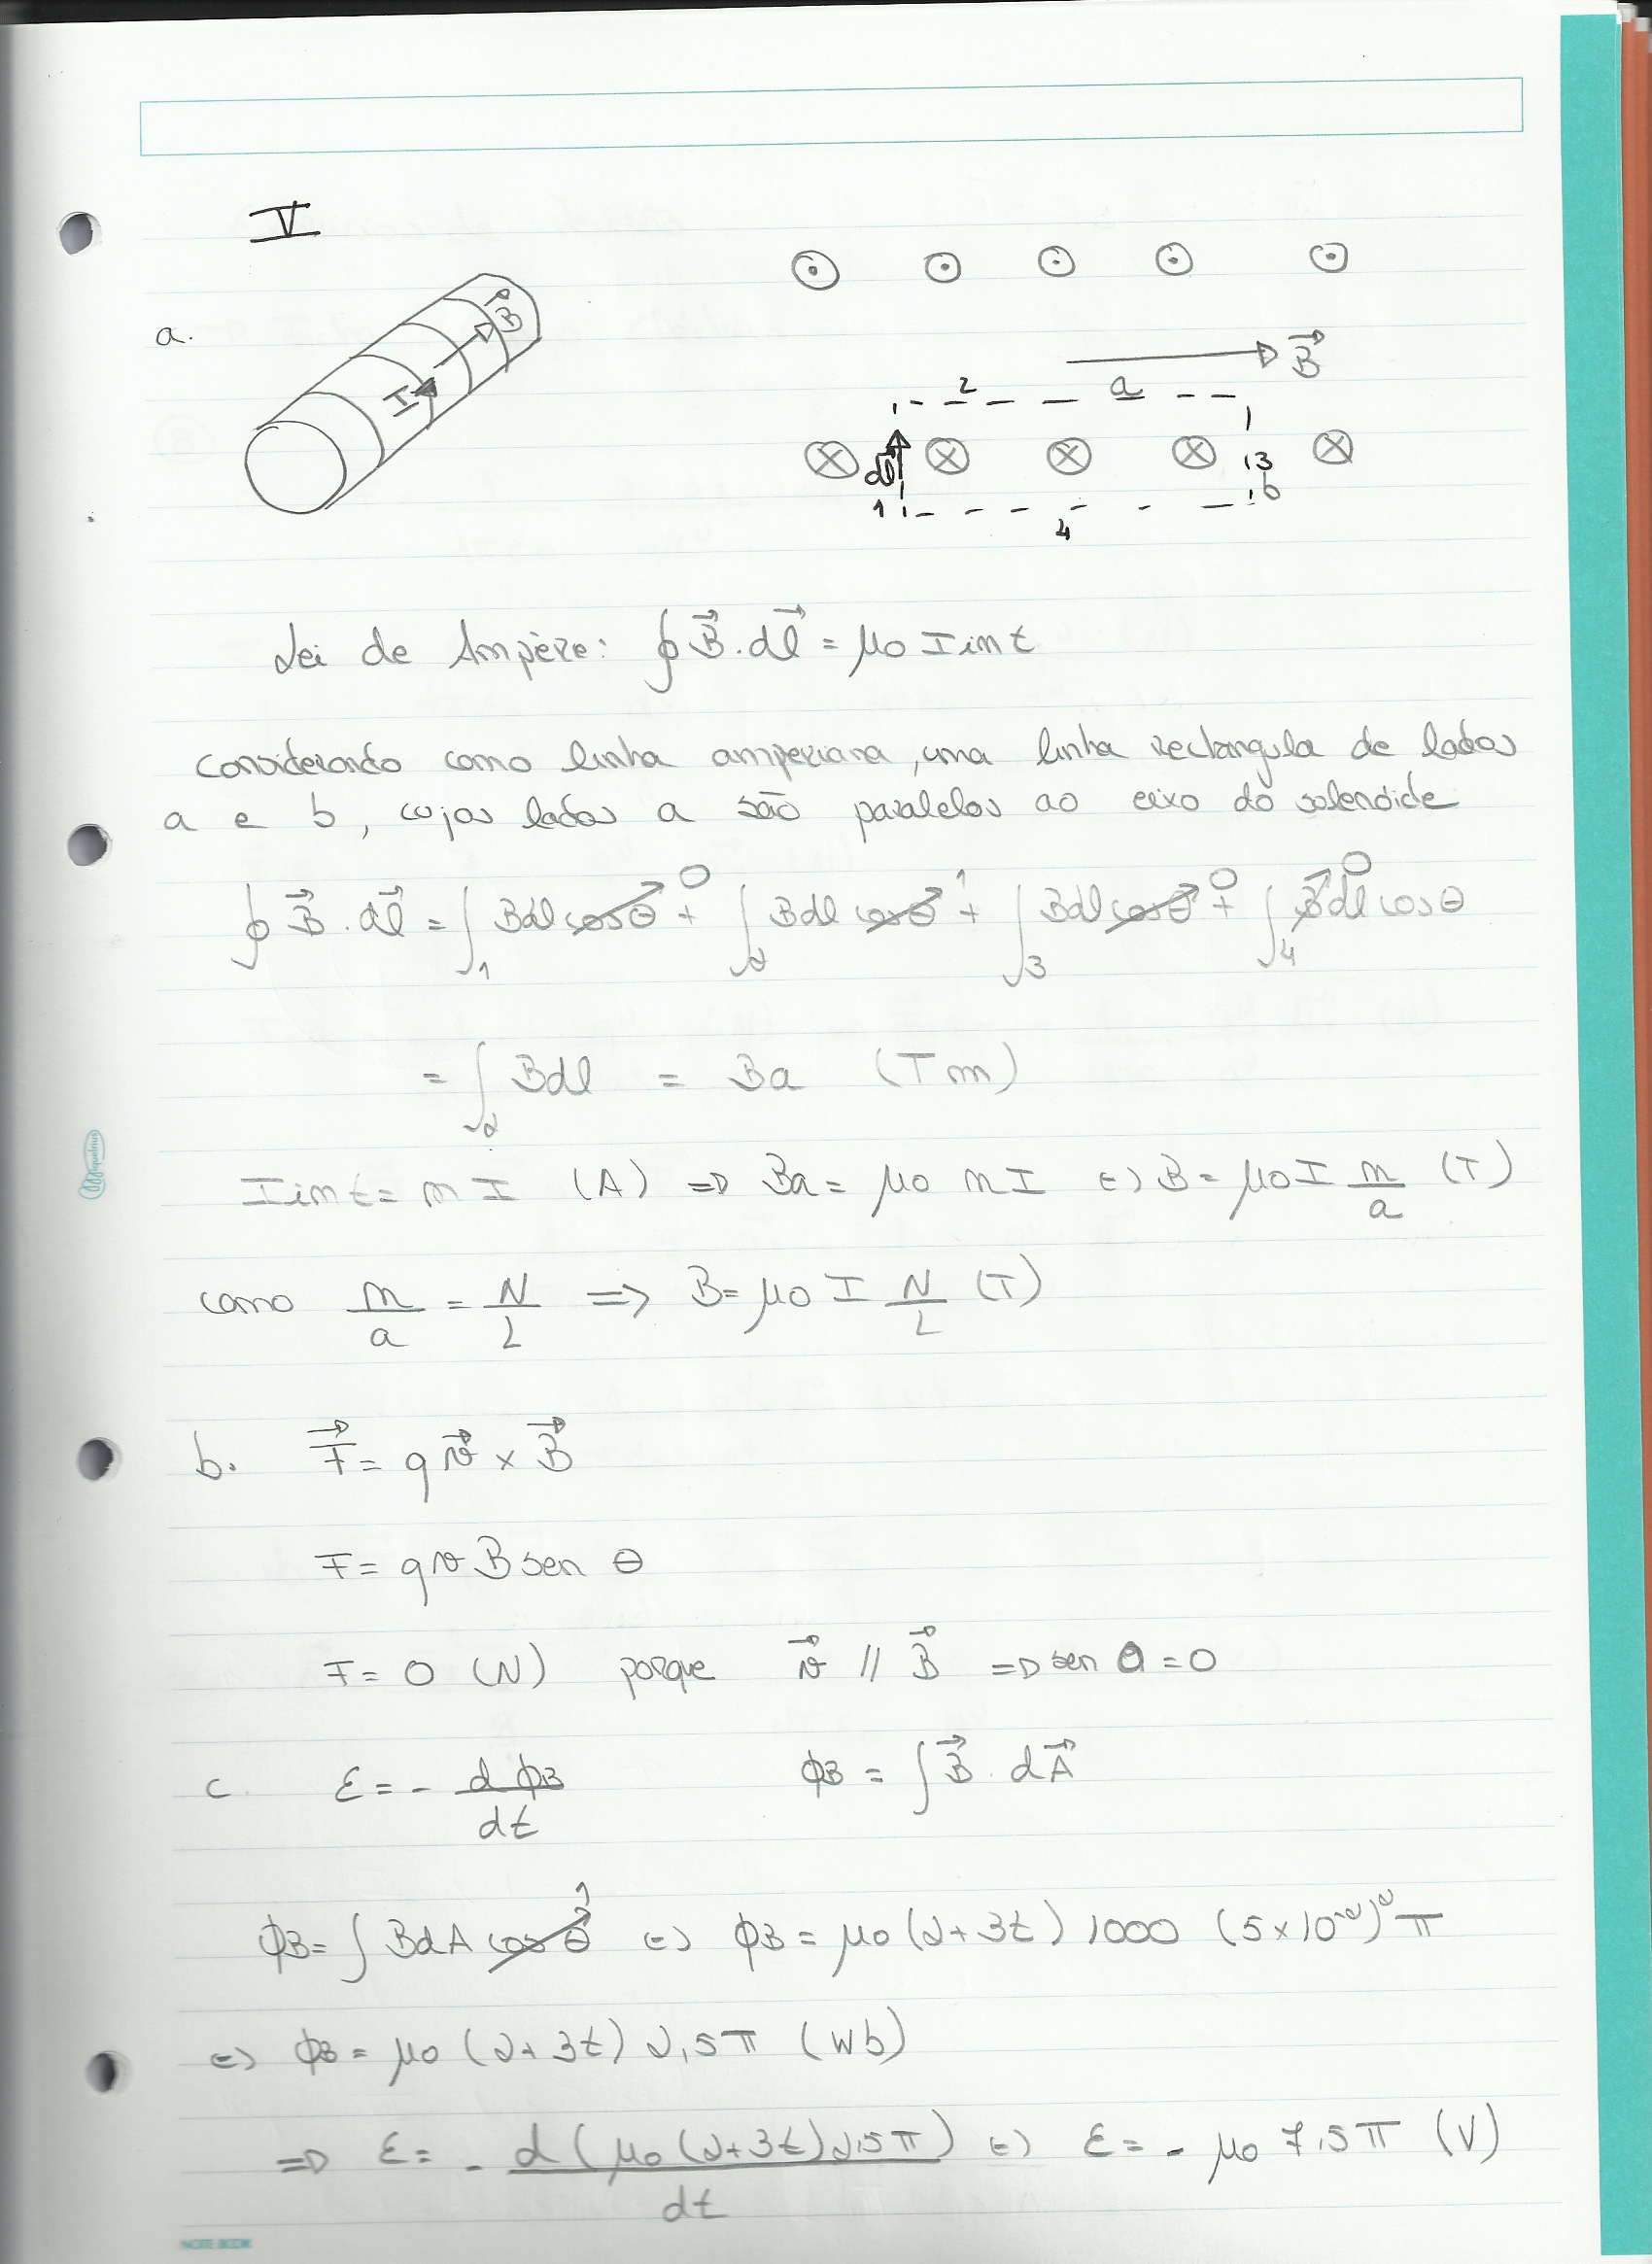 V
a.
I
B⃗
B⃗
2 a
dl
3
b
1
4
Lei de Ampère: ∮ B⃗ . dl⃗ = μ0 I int
Considerando como linha amperiana, uma linha rectangula de lados
a e b, cujos lados a são paralelos ao eixo do solenóide
∮ B⃗ . dl⃗ = ∫1 Bdl cosθ 0 + ∫2 Bdl cosθ 1 + ∫3 Bdl cosθ 0 + ∫4 Bdl cosθ 0
= ∫2 Bdl = Ba (Tm)
I int = n I (A) => Ba = μ0 n I <=> B = μ0 I n/a (T)
como n/a = N/L => B = μ0 I N/L (T)
b. F⃗ = q v⃗ × B⃗
F = q v B sen θ
F = 0 (N) porque v⃗ // B⃗ => sen θ = 0
c. ε = - dϕB/dt ϕB = ∫ B⃗ . dA⃗
ϕB = ∫ B dA cosθ 1 <=> ϕB = μ0 (2+3t) 1000 (5×10⁻²)² π
<=> ϕB = μ0 (2+3t) 2,5π (Wb)
=> ε = - d(μ0 (2+3t) 2,5π)/dt <=> ε = - μ0 7,5π (V)
miquelrius
NOTE BOOK